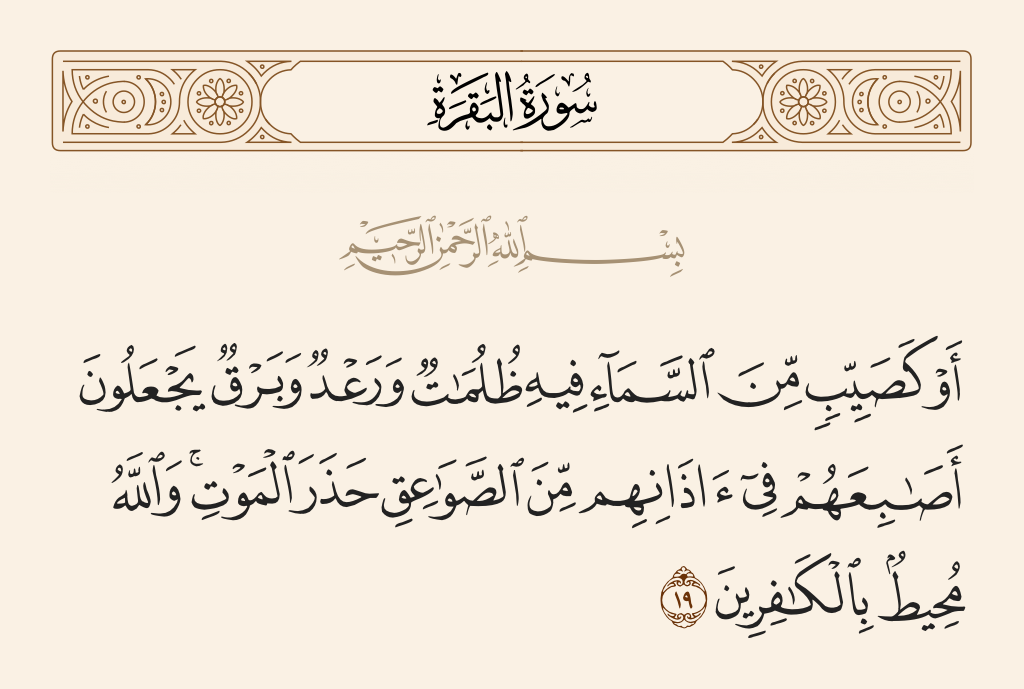 سُورَةُ البَقَرَةِ
بِسْمِ ٱللَّهِ ٱلرَّحْمَٰنِ ٱلرَّحِيمِ
أَوْ كَصَيِّبٍ مِّنَ ٱلسَّمَآءِ فِيهِ ظُلُمَٰتٌ وَرَعْدٌ وَبَرْقٌ يَجْعَلُونَ
أَصَٰبِعَهُمْ فِىٓ ءَاذَانِهِم مِّنَ ٱلصَّوَٰعِقِ حَذَرَ ٱلْمَوْتِ ۚ وَٱللَّهُ
مُحِيطٌۢ بِٱلْكَٰفِرِينَ ١٩